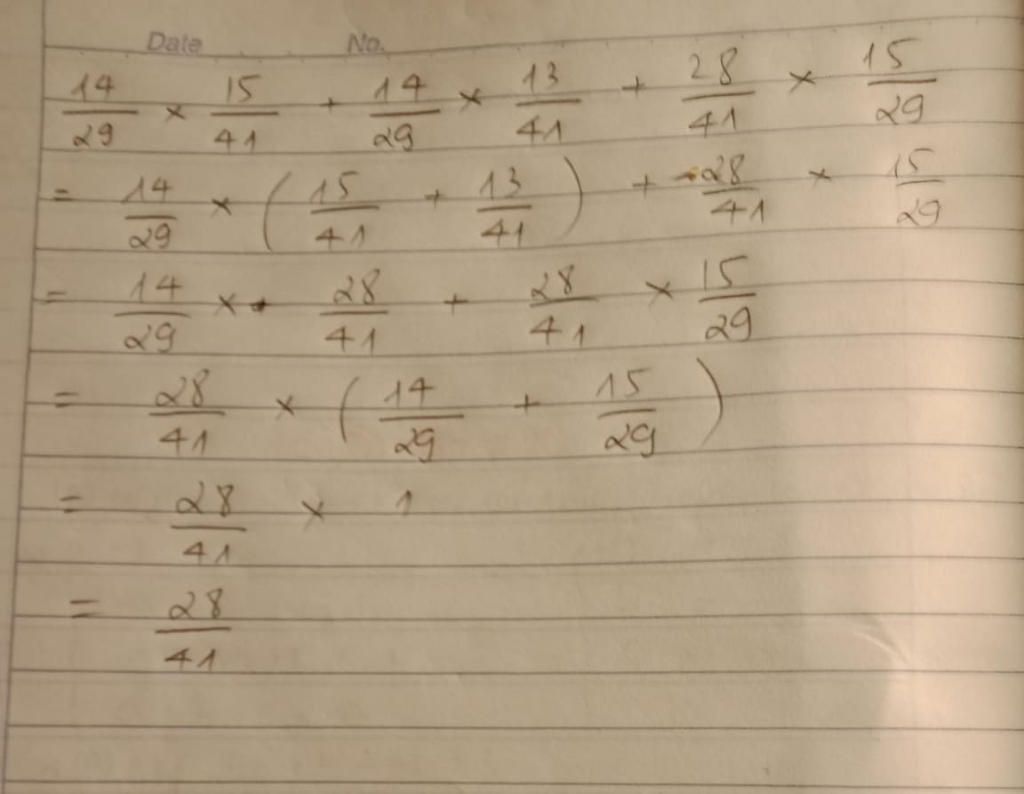 Date No.
14/29 × 15/41 + 14/29 × 13/41 + 28/41 × 15/29
= 14/29 × (15/41 + 13/41) + 28/41 × 15/29
= 14/29 × 28/41 + 28/41 × 15/29
= 28/41 × (14/29 + 15/29)
= 28/41 × 1
= 28/41